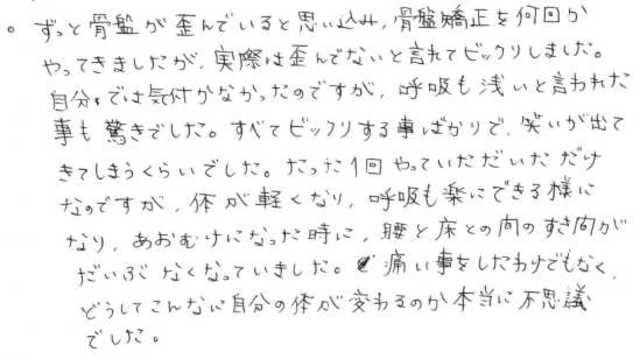 。ずっと骨盤が歪んでいると思い込み、骨盤矯正を何回か
やってきましたが、実際は歪んでないと言れてビックリしました。
自分では気付かなかったのですが、呼吸も浅いと言われた
事も驚きでした。すべてビックリする事ばかりで、笑いが出て
きてしまうくらいでした。たった1回やっていただいただけ
なのですが、体が軽くなり、呼吸も楽にできる様に
なり、あおむけになった時に、腰と床との間のすき間が
だいぶなくなっていきました。痛い事をしたわけでもなく、
どうしてこんなに自分の体が変わるのか本当に不思議
でした。